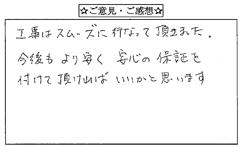 ☆ご意見・ご感想☆
工事はスムーズに行なって頂きました。
今後も より安く 安心の保証を
付けて頂ければ いいかと思います